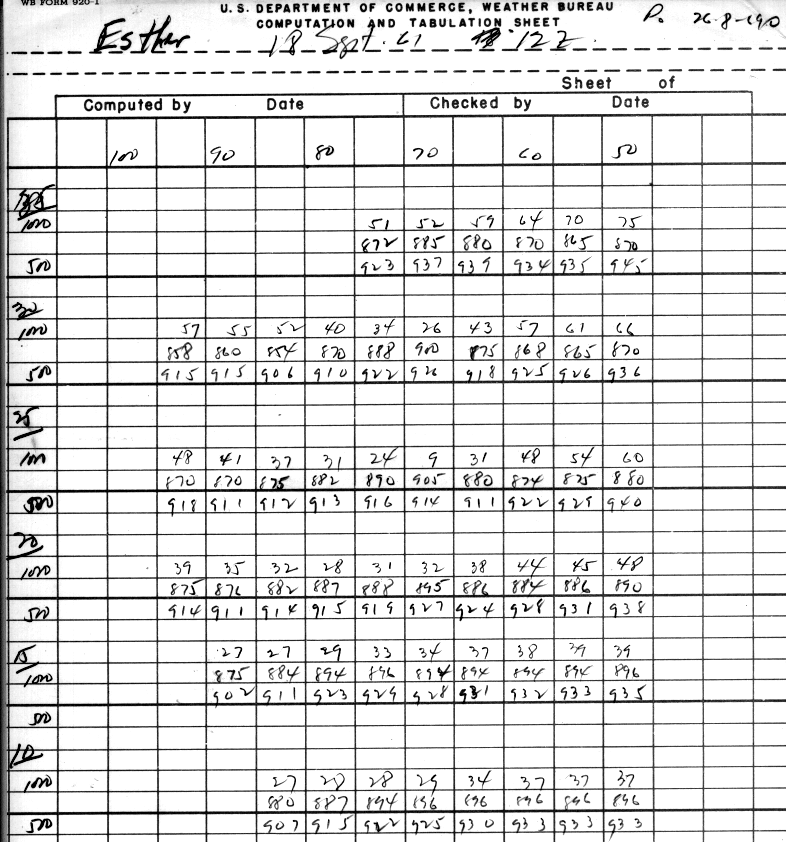 WB FORM 920-1
U. S. DEPARTMENT OF COMMERCE, WEATHER BUREAU
COMPUTATION AND TABULATION SHEET
P. 26-8-190
Esther 18 Sept. 61 12Z
Sheet of
Computed by Date Checked by Date
100 90 80 70 60 50
1000 51 52 59 64 70 75
872 885 880 870 865 870
500 923 937 939 934 935 945
30
1000 57 55 52 40 34 26 43 57 61 66
858 860 854 870 888 900 875 868 865 870
500 915 915 906 910 922 926 918 925 926 936
25
1000 48 41 37 31 24 9 31 48 54 60
870 870 875 882 890 905 880 874 875 880
500 918 911 912 913 916 914 911 922 929 940
20
1000 39 35 32 28 31 32 38 44 45 48
875 876 882 887 888 895 886 884 886 890
500 914 911 914 915 919 927 924 928 931 938
15 27 27 29 33 34 37 38 39 39
1000 875 884 894 896 894 894 894 894 896
902 911 923 929 928 931 932 933 935
500
10
1000 27 28 28 29 34 37 37 37
880 887 894 896 896 896 896 896
500 907 915 922 925 930 933 933 933